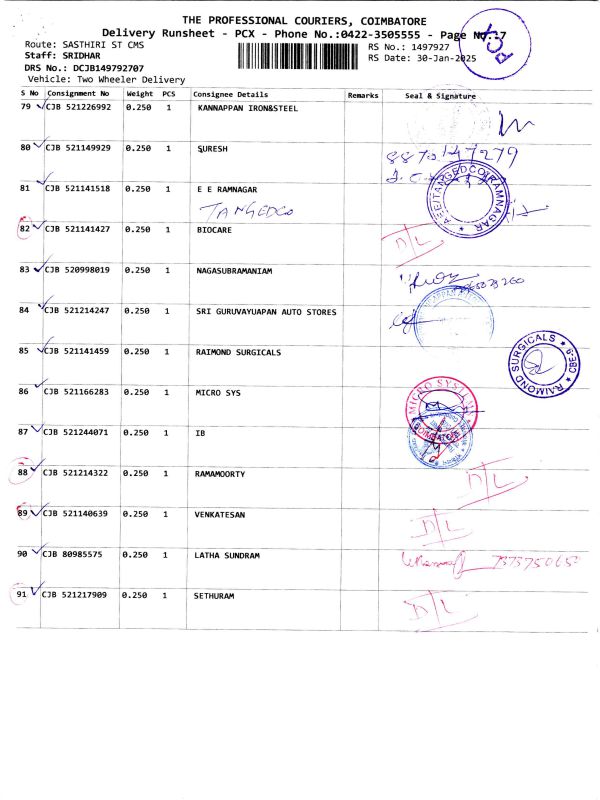 THE PROFESSIONAL COURIERS, COIMBATORE
Delivery Runsheet - PCX - Phone No.:0422-3505555 - Page No.:7
Route: SASTHIRI ST CMS
RS No.: 1497927
Staff: SRIDHAR
RS Date: 30-Jan-2025
DRS No.: DCJB149792707
Vehicle: Two Wheeler Delivery
S No Consignment No Weight PCS Consignee Details Remarks Seal & Signature
79 CJB 521226992 0.250 1 KANNAPPAN IRON&STEEL
80 CJB 521149929 0.250 1 SURESH
8870147279
81 CJB 521141518 0.250 1 E E RAMNAGAR
TANGEDCO
AEE/TANGEDCO/RAMNAGAR
82 CJB 521141427 0.250 1 BIOCARE D/L
83 CJB 520998019 0.250 1 NAGASUBRAMANIAM
84 CJB 521214247 0.250 1 SRI GURUVAYUAPAN AUTO STORES
85 CJB 521141459 0.250 1 RAIMOND SURGICALS
RAIMOND SURGICALS CBE-9
86 CJB 521166283 0.250 1 MICRO SYS
MICRO SYSTEM
COIMBATORE
87 CJB 521244071 0.250 1 IB
88 CJB 521214322 0.250 1 RAMAMOORTY D/L
89 CJB 521140639 0.250 1 VENKATESAN D/L
90 CJB 80985575 0.250 1 LATHA SUNDRAM
91 CJB 521217909 0.250 1 SETHURAM D/L